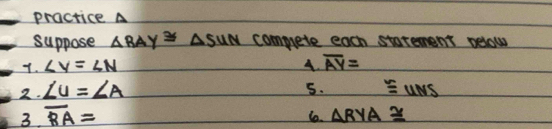 Practice A
Suppose △RAY ≅ △SUN complete each statement below
1. ∠Y = ∠N 4. A̅Y̅=
2. ∠U = ∠A 5. ≅ UNS
3. R̅A̅ = 6. △RYA ≅